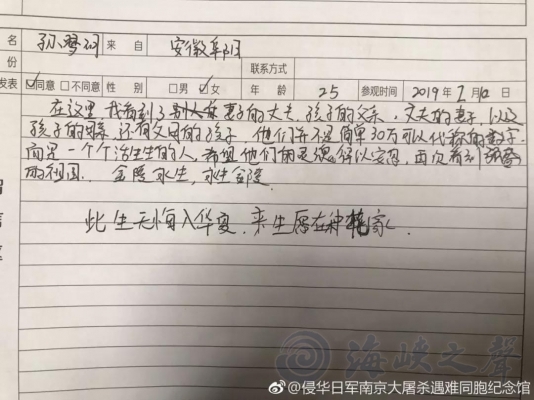 名 孙梦词 来自 安徽阜阳
份 联系方式
发表 ☑同意 □不同意 性别 □男 ☑女 年龄 25 参观时间 2019年2月12日
在这里我看到了别人称妻子的丈夫,孩子的父亲,丈夫的妻子,以及
孩子的母亲,还有父母的孩子,他们并不是简单30万可以代称的数字
而是一个个活生生的人,希望他们的灵魂得以安息,再次看到
的祖国. 金陵永生,永生金陵
此生无悔入华夏,来生愿在种花家.
海峡之声
@侵华日军南京大屠杀遇难同胞纪念馆